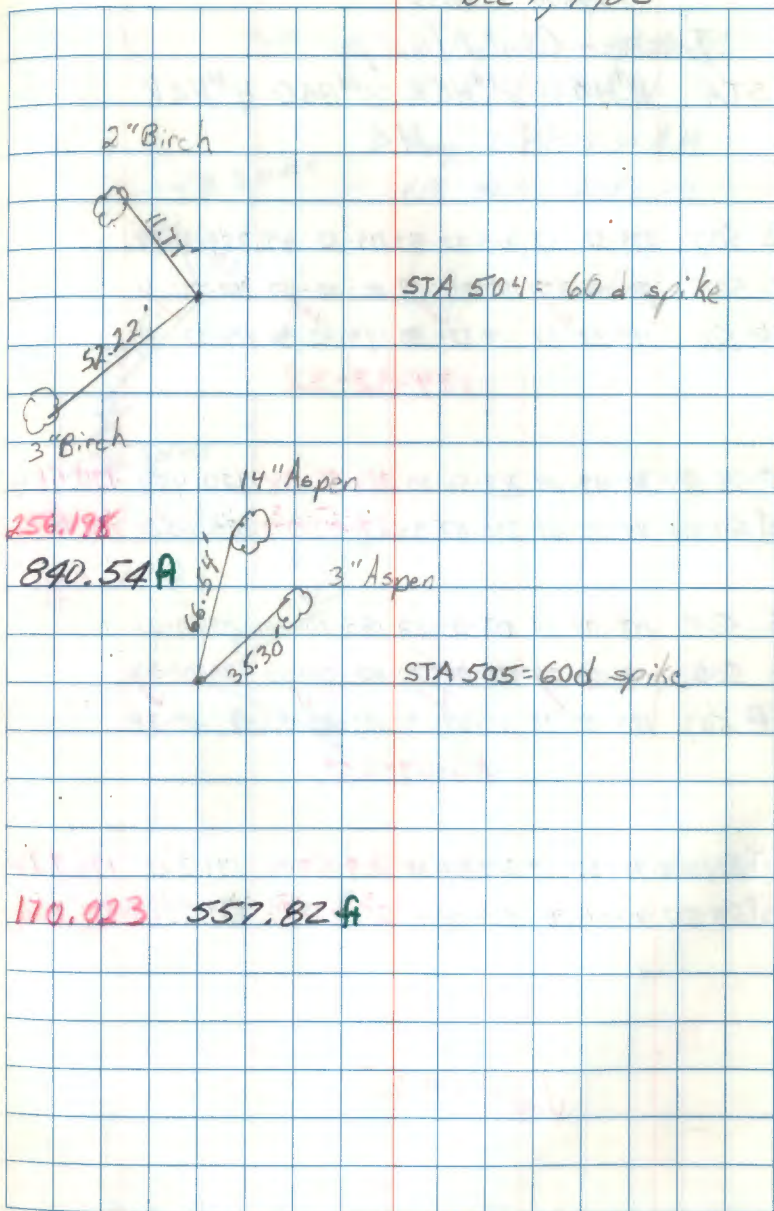 2" Birch
11.77'
STA 504 = 60 d spike
52.22'
3" Birch
14" Aspen
256.198
840.54 ft
66.54'
3" Aspen
35.30'
STA 505 = 60d spike
170.023 557.82 ft